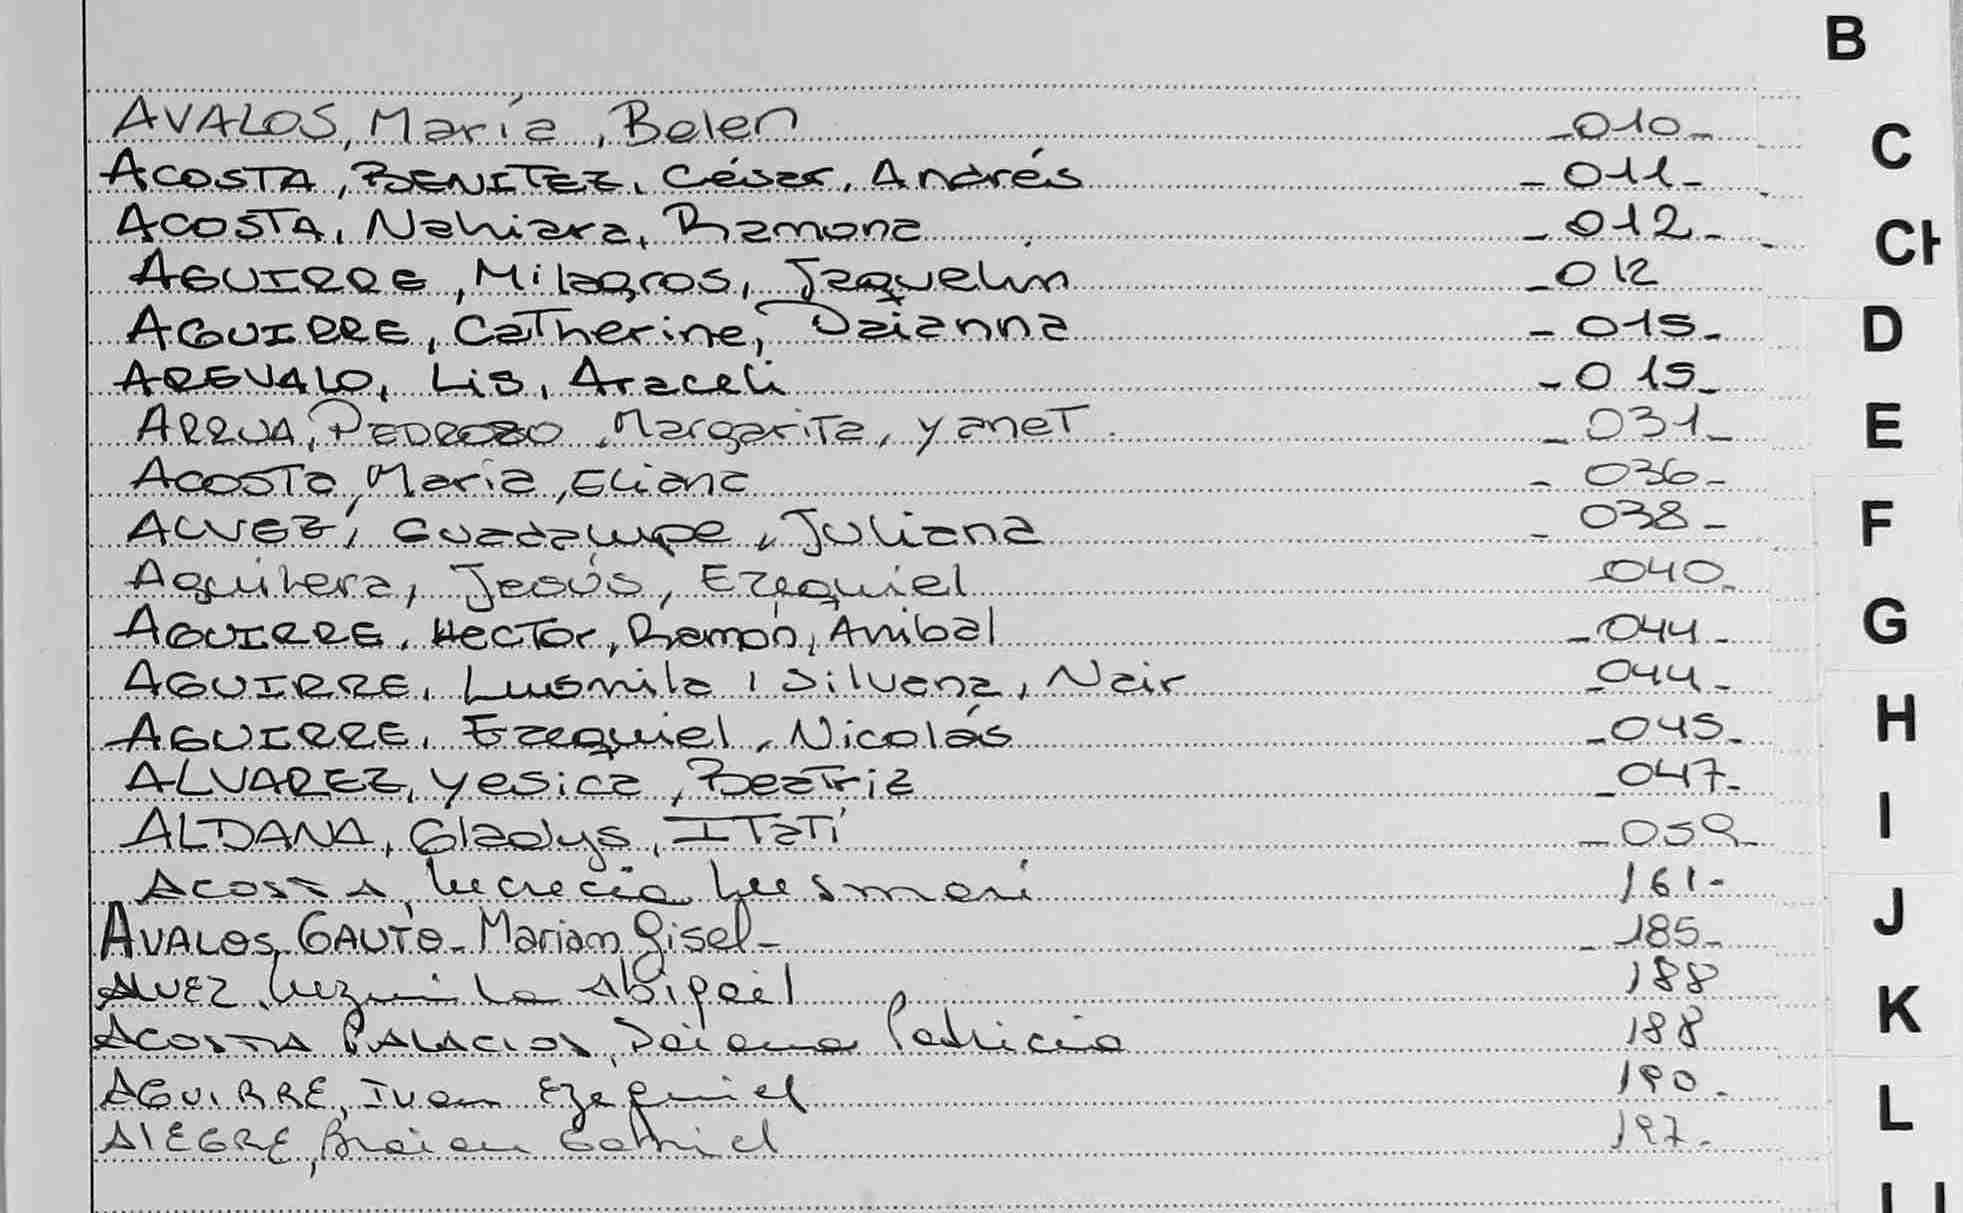 B
AVALOS, María, Belen -010-
C
ACOSTA, BENITEZ, César, Andrés -011-
ACOSTA, Nahiara, Ramona -012-
CH
AGUIRRE, Milagros, Jaquelin -012
AGUIRRE, Catherine, Daianna -015-
D
AREVALO, Lis, Araceli -015-
ARRUA, PEDROZO, Margarita, yanet -031-
E
ACOSTA, María, Eliana -036-
ALVEZ, Guadalupe, Juliana -038-
F
Aguilera, Jesús, Ezequiel -040-
AGUIRRE, Hector, Ramón, Anibal -044-
G
AGUIRRE, Lusmila, Silvana, Nair -044-
AGUIRRE, Ezequiel, Nicolás -045-
H
ALVAREZ, yesica, Beatriz -047-
ALDANA, Gladys, ITATÍ -059-
I
ACOSTA, Lucrecia Lusmari 161-
AVALOS, GAUTO- Mariam Gisel- -185-
J
ALVEZ, Luzmila Abigail 188
ACOSTA PALACIOS, Daiana Patricia 188
K
AGUIRRE, Ivan Ezequiel 190-
ALEGRE, Braian Gabriel 197-
L